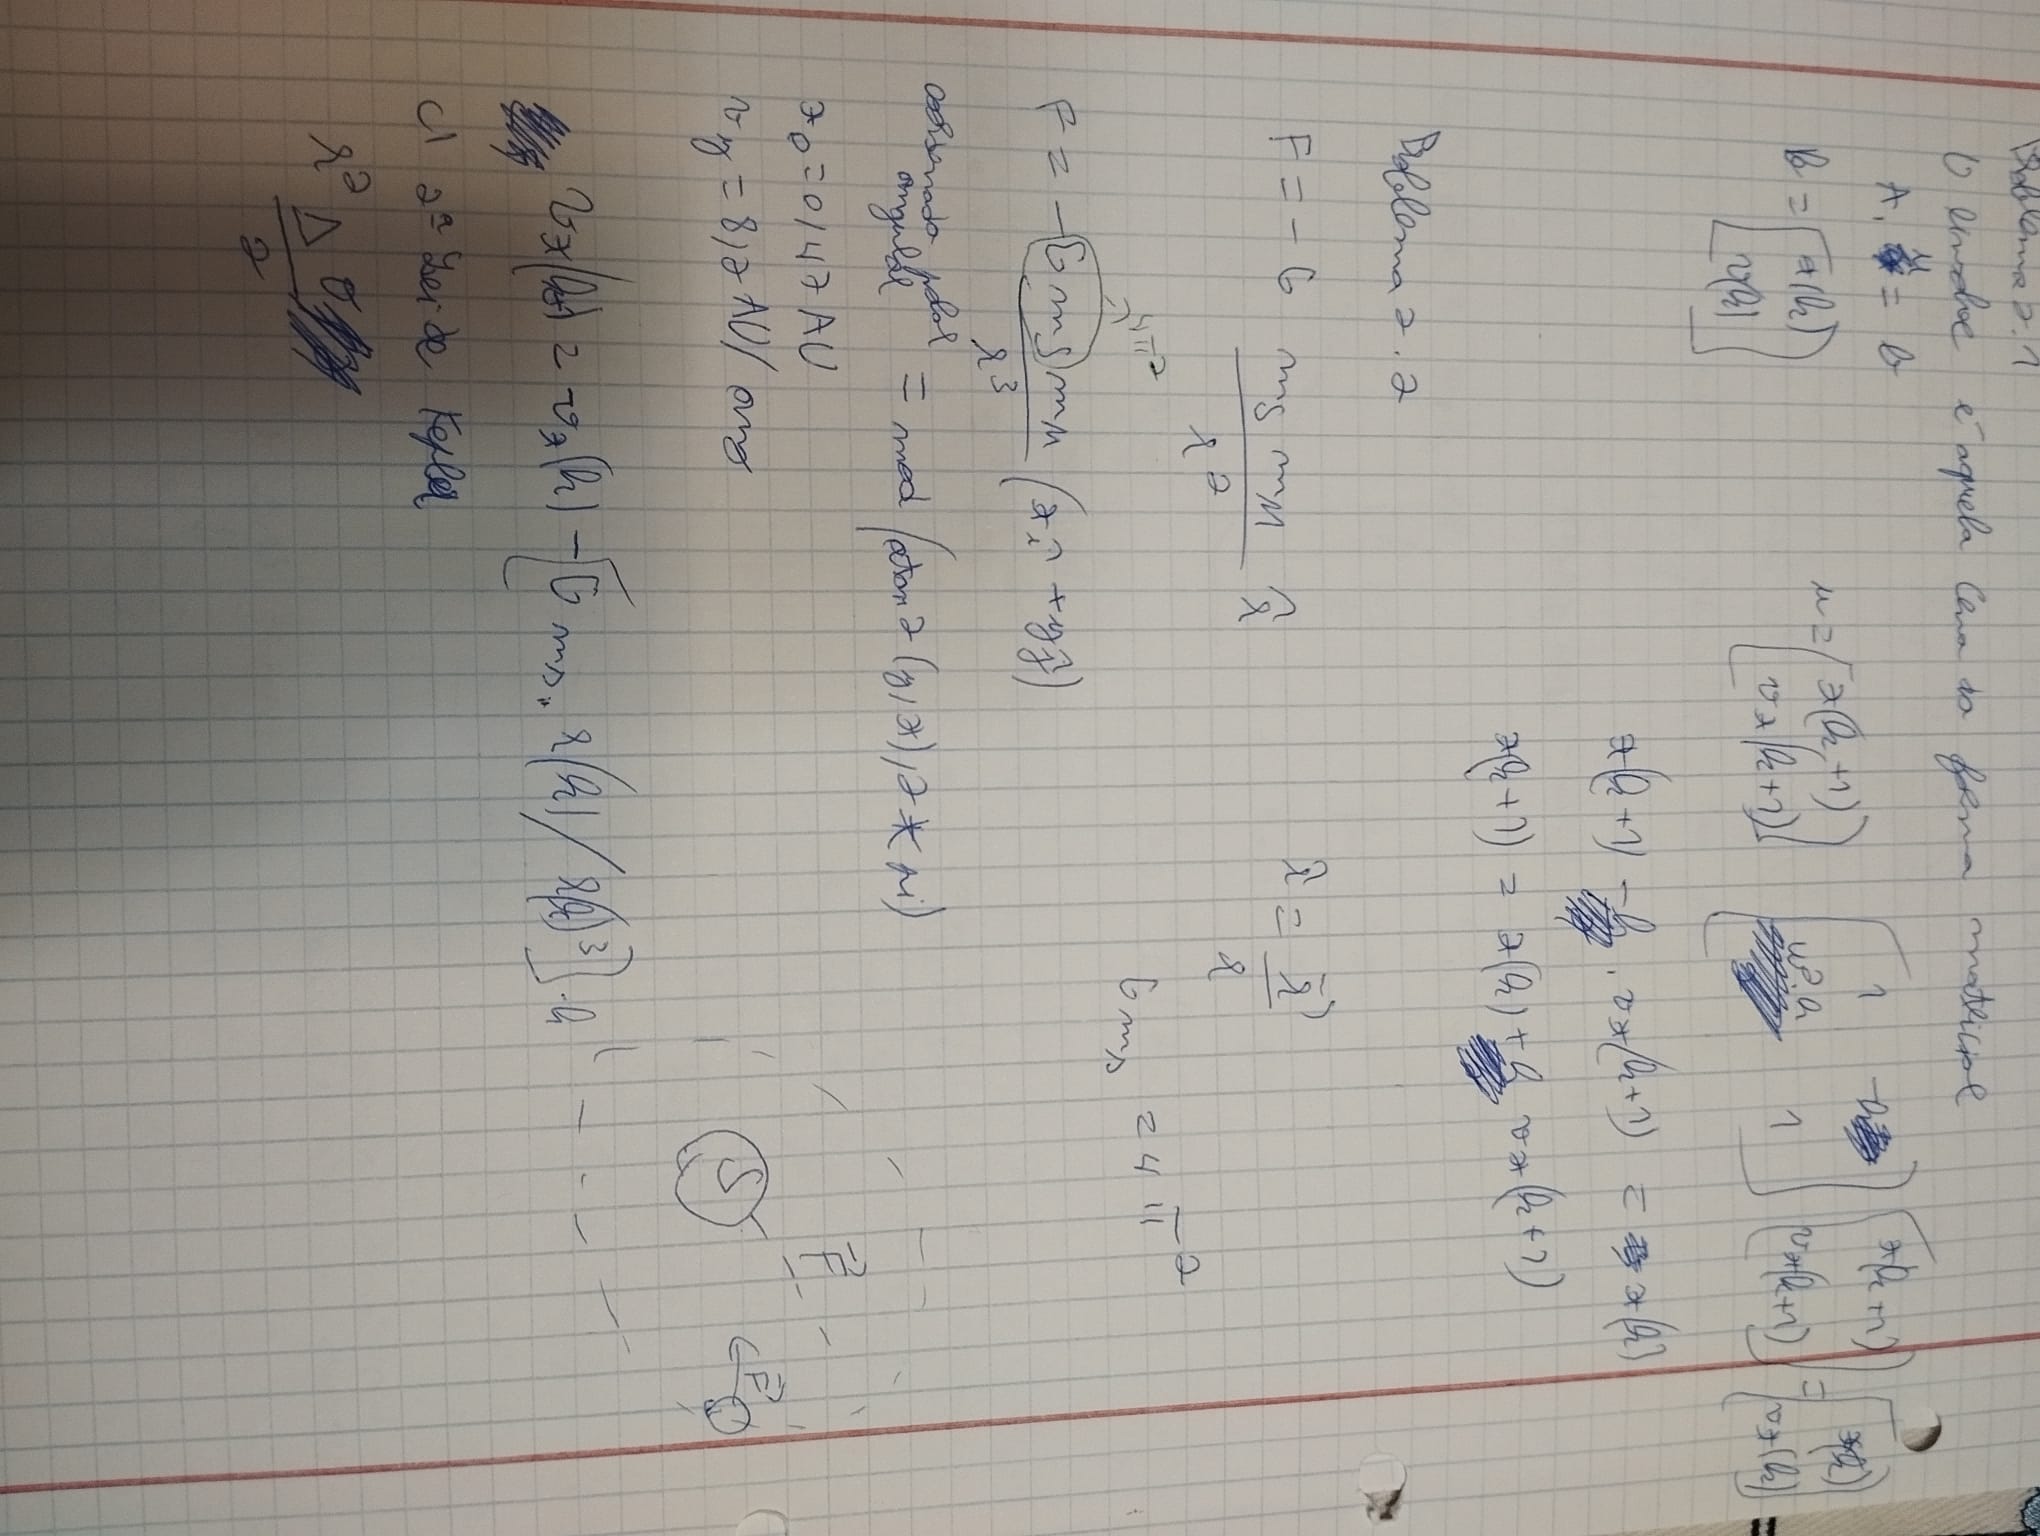 Problema 2.1
O é aquela cena da forma matricial
A. u = b
B = [x(k) v(k)]
u = [x(k+1) vx(k+1)]
[1 -h w².h 1] [x(k+1) vx(k+1)] = [x(k) vx(k)]
x(k+1) - h . vx(k+1) = x(k)
x(k+1) = x(k) + h vx(k+1)
Problema 2.2
F = - G mS mM / r² r̂
r̂ = r⃗ / r
G ms = 4 π²
4π²
F = - G mS mM / r³ (x î + y ĵ)
coordenada polar angular = mod (atan2 (y, x), 2 * pi)
x0 = 0,47 AU
vy = 8,2 AU/ ano
F⃗
S
F⃗
vx(k+1) = vx(k) - [G ms . r(k) / r(k)³] . h
c) 2ª Lei de Kepler
r² Δθ / 2